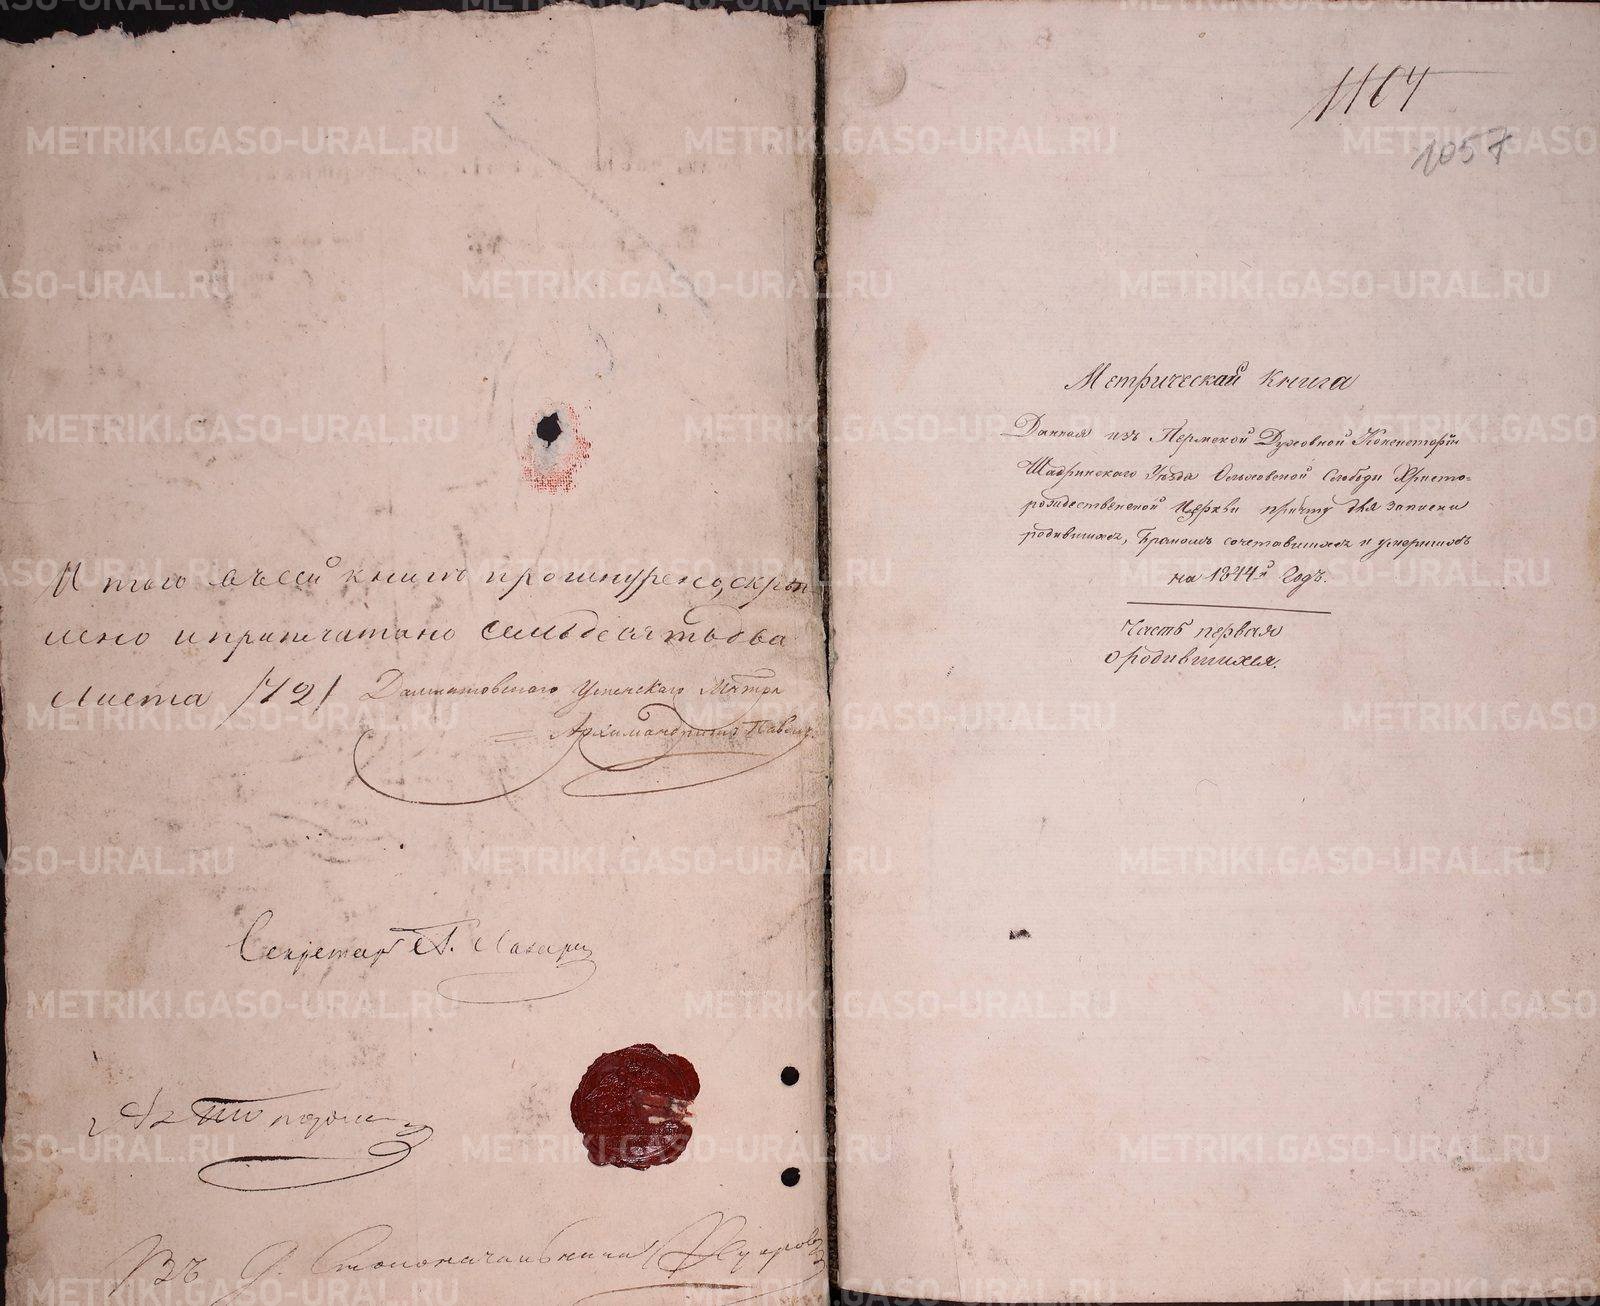 Итого въ сей книгѣ прошнурено, скрѣп
лено и припечатано семьдесятъ два
листа /72/ Далматовскаго Успенскаго Мнтря
Архимандритъ Павелъ
Секретарь
Столоначальника
1104
1057
Метрическая Книга
Данная изъ Пермской Духовной Консисторіи
Шадринскаго Уѣзда Ольховской Слободы Христо=
рождественской Церкви причту для записки
родившихся, Бракомъ сочетавшихся и умершихъ
на 1844й Годъ.
Часть первая
о родившихся.
METRIKI.GASO-URAL.RU